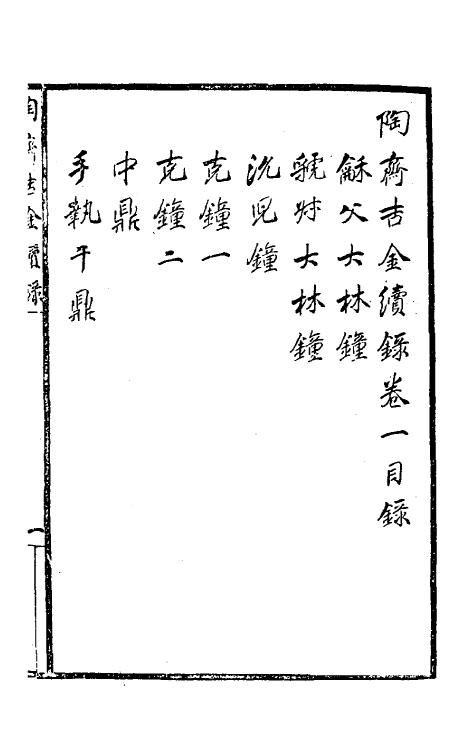 陶齋吉金續錄卷一目錄
龢父大林鐘
虢叔大林鐘
沇兒鐘
克鐘一
克鐘二
中鼎
手執干鼎
陶齋吉金續錄一
一